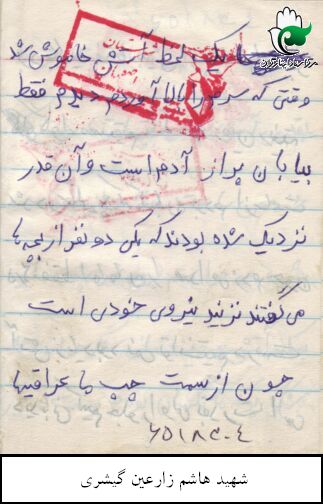 یک لحظه آتش خاموش شد
وقتی که سرم را بالا آوردم دیدم فقط
بیابان پر از آدم است و آن قدر
نزدیک شده بودند که یکی دو نفر از بچه ها
می گفتند نزنید نیروی خودی است
چون از سمت چپ ما عراقیها
شهید هاشم زارعین گیشری